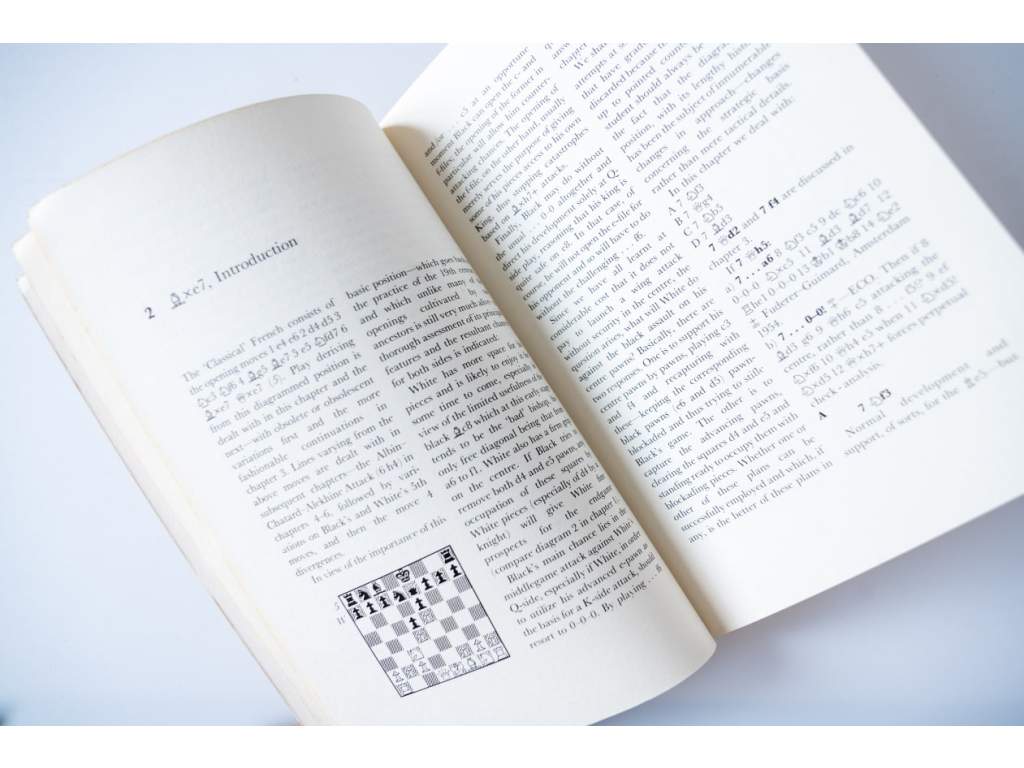 2 ♗×e7. Introduction
The ‘Classical’ French consists of
the opening moves 1 e4 e6 2 d4 d5 3
♘c3 ♘f6 4 ♗g5 ♗e7 5 e5 ♘fd7 6
♗×e7 ♕×e7 (5). Play deriving
from this diagrammed position is
dealt with in this chapter and the
next—with obsolete or obsolescent
variations first and the more
fashionable continuations in
chapter 3. Lines varying from the
above moves are dealt with in
subsequent chapters—the Albin-
Chatard-Alekhine Attack (6 h4) in
chapters 4-6, followed by vari-
ations on Black's and White's 5th
moves, and then the move 4
divergences.
In view of the importance of this
5
W
basic position—which goes
the practice of the 19th
and which unlike many
openings cultivated
ancestors is still very much
thorough assessment of its
features and the resultant
for both sides is indicated.
White has more space for
pieces and is likely to enjoy
some time to come, especially
view of the limited usefulness of
black ♗c8 which at this early
tends to be the ‘bad’ bishop,
only free diagonal being that from
a6 to f1. White also has a firm
on the centre. If Black tries
remove both d4 and e5 pawns,
occupation of these squares by
White pieces (especially of d4 by a
knight) will give White
prospects for the endgame
(compare diagram 2 in chapter 1).
Black's main chance lies in the
middlegame attack against White's
Q-side, especially if White, in order
to utilize his advanced e-pawn as
the basis for a K-side attack, should
resort to 0-0-0. By playing ... f6
and/or ... c5 at an opportune
moment, Black can open the c- and
f-files; the opening of the former in
particular will allow him counter-
attacking chances. The opening of
the f-file, on the other hand, usually
merely serves the purpose of giving
some of his pieces access to his own
K-side, thus stopping catastrophes
based on ♗×h7+ attacks.
Finally, Black may do without
the usual ... 0-0 altogether and
direct his development solely at Q-
side play, reasoning that his king is
quite safe on e8. In that case, of
course, he will not open the e-file for
his opponent and so will have to do
without the challenging ... f6.
Since we have all learnt at
considerable cost that it does not
pay to launch a wing attack
without security in the centre, the
question arises, what will White do
against the black assault on his
centre pawns? Basically, there are
two responses. One is to support his
centre pawns by pawns, playing c3
and f4 and recapturing with
these, keeping the corresponding
black pawns (e6 and d5) pawn-
blockaded and thus trying to stifle
Black's game. The other is to
capture the advancing pawns,
clearing the squares d4 and e5 and
standing ready to occupy them with
blockading pieces. Whether one or
other of these plans can be
successfully employed and which, if
any, is the better of these plans in
chapter
We shall
attempts at
that have
discarded because
up to pointed
student should always
the fact that the diagram
position, with its lengthy history
has been the subject of innumerable
changes in approach—changes
concerning the strategic basis
rather than mere tactical details.
In this chapter we deal with:
A 7 ♘f3
B 7 ♕g4
C 7 ♘b5
D 7 ♗d3
7 ♕d2 and 7 f4 are discussed in
chapter 3.
If 7 ♕h5:
7 ... a6 8 ♘f3 c5 9 dc ♘c6 10
0-0-0 ♘×c5 11 ♗d3 ♗d7 12
♖he1 0-0-0 13 ♔b1 ♔b8 14 ♘e2
± Fuderer-Guimard, Amsterdam
1954.
7 ... 0-0! ∓—ECO. Then if 8
♗d3 g6 9 ♕h6 c5 attacking the
centre, rather than 8 ... ♘c6? 9 ef
♘×f6 10 ♕h4 e5 when 11 ♘×d5!
♘×d5 12 ♗×h7+ forces perpetual
check—analysis.
A 7 ♘f3
Normal development and
support, of sorts, for the ♗e5—but